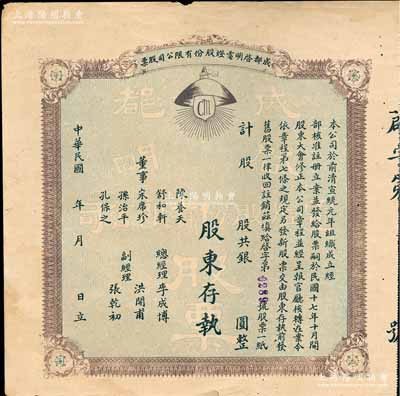 成都啓明電燈股份有限公司股票
本公司於前清宣統元年組織成立經
部核准註冊立案並發給股票嗣於民國十七年十月開
股東大會修正本公司章程並經呈報官廳核轉在案今
依章程第七條之規定另發新股票交由股東存執前發
舊股票一律收回註銷茲填給啓字第 號股票一紙
計股 股共銀 圓整
股東存執
董事
陳養天
舒和軒
宋席珍
孫治平
孔保之
總經理 李成博
副經理
洪開甫
張乾初
中華民國 年 月 日立
號